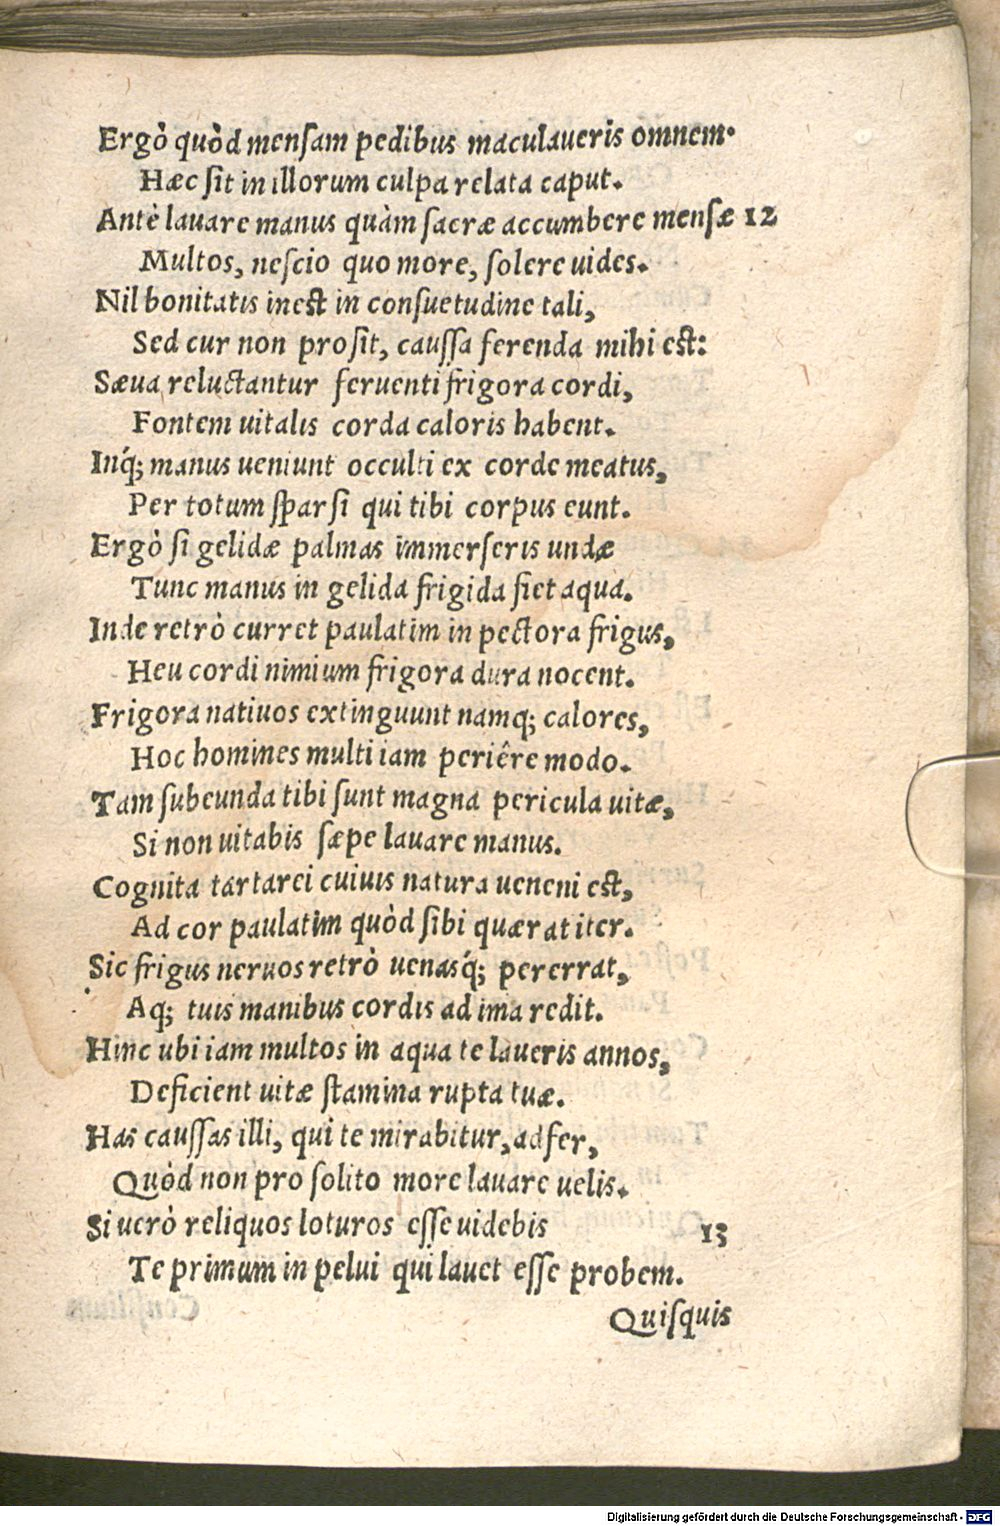 Ergò quòd mensam pedibus maculaueris omnem.
Hæc sit in illorum culpa relata caput.
Antè lauare manus quàm sacræ accumbere mensæ 12
Multos, nescio quo more, solere uides.
Nil bonitatis inest in consuetudine tali,
Sed cur non prosit, caussa ferenda mihi est:
Sæua reluctantur feruenti frigora cordi,
Fontem uitalis corda caloris habent.
Inq́; manus ueniunt occulti ex corde meatus,
Per totum sparsi qui tibi corpus eunt.
Ergò si gelidæ palmas immerseris undæ
Tunc manus in gelida frigida fiet aqua.
Inde retrò curret paulatim in pectora frigus,
Heu cordi nimium frigora dura nocent.
Frigora natiuos extinguunt namq; calores,
Hoc homines multi iam periêre modo.
Tam subeunda tibi sunt magna pericula uitæ,
Si non uitabis sæpe lauare manus.
Cognita tartarei cuiuis natura ueneni est,
Ad cor paulatim quòd sibi quærat iter.
Sic frigus neruos retrò uenasq́; pererrat,
Aq; tuis manibus cordis ad ima redit.
Hinc ubi iam multos in aqua te laueris annos,
Deficient uitæ stamina rupta tuæ.
Has caussas illi, qui te mirabitur, adfer,
Quòd non pro solito more lauare uelis.
Si uerò reliquos loturos esse uidebis 13
Te primum in pelui qui lauet esse probem.
Quisquis
Digitalisierung gefördert durch die Deutsche Forschungsgemeinschaft - DFG